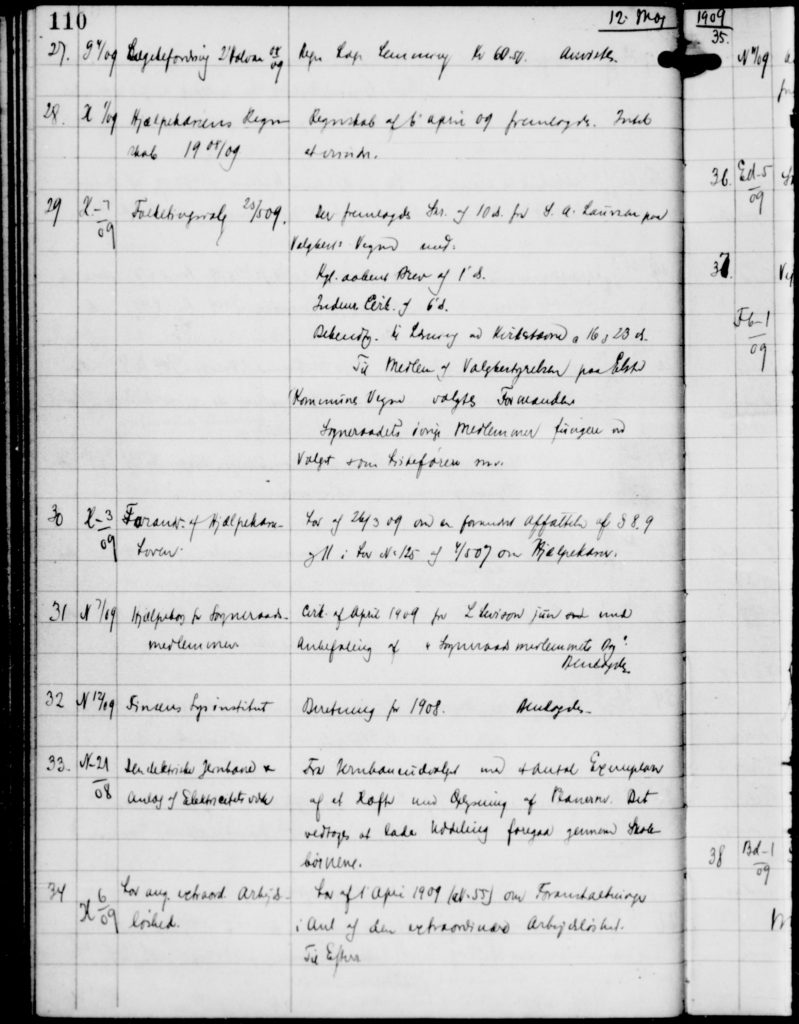 110
12. Maj 1909
27. 9 4/09 Lægebefordring 2' Halvaar 08/09 Regn fra Lemming Kr 60.50. Anvistes.
28. X 1/09 Hjælpekassens Regn-
skab 1908/09
Regnskab af 6' april 09 fremlagdes. Intet
at erindre.
29 X-7/09 Folketingsvalg 25/5 09.
Der fremlagdes Skr. af 10 ds. fra
Valgbest. Vegne med:
Kgl. aabent Brev af 1' ds.
Indenr. Cirk. af 6' ds.
Bekendtg. til Læsning ved Kirkestævne 16 og 23 ds.
Til Medlem af Valgbestyrelsen paa
Kommunes Vegne valgtes Formanden
Sogneraadets øvrige Medlemmer fungere ved
Valget som Listeførere
30 X-3/09 Forandr. af Hjælpekasse-
Loven.
Lov af 26/3 09 om en forandret Affattelse af § 8. 9
og 11 i Lov No 125 af 4/5 07 om Hjælpekasser.
31 N 7/09 Hjælpebog for Sogneraads-
medlemmer
Cirk. af April 1909 fra L Levison jun med
Anbefaling af "Sogneraadsmedlemmets Bog".
Henlagdes.
32 N 12/09 Finsens Lysinstitut Beretning for 1908. Henlagdes.
33. N-21/08 Den elektriske Jernbane &
Anlæg af Elektricitetsværk
Fra Jernbaneudvalget med Antal Exemplarer
af et Hæfte med Oplysning af Banerne. Det
vedtoges at lade Uddeling foregaa gennem Skole-
børnene.
34 X 6/09 Lov ang. extraord. Arbejds-
løshed.
Lov af 1' April 1909 (No 55) om Foranstaltninger
i Anl. af den extraordinære Arbejdsløshed.
Til Efterr.
35.
N 4/09
36. Ed-5/09
37.
Fb-1/09
38 Bd-1/09